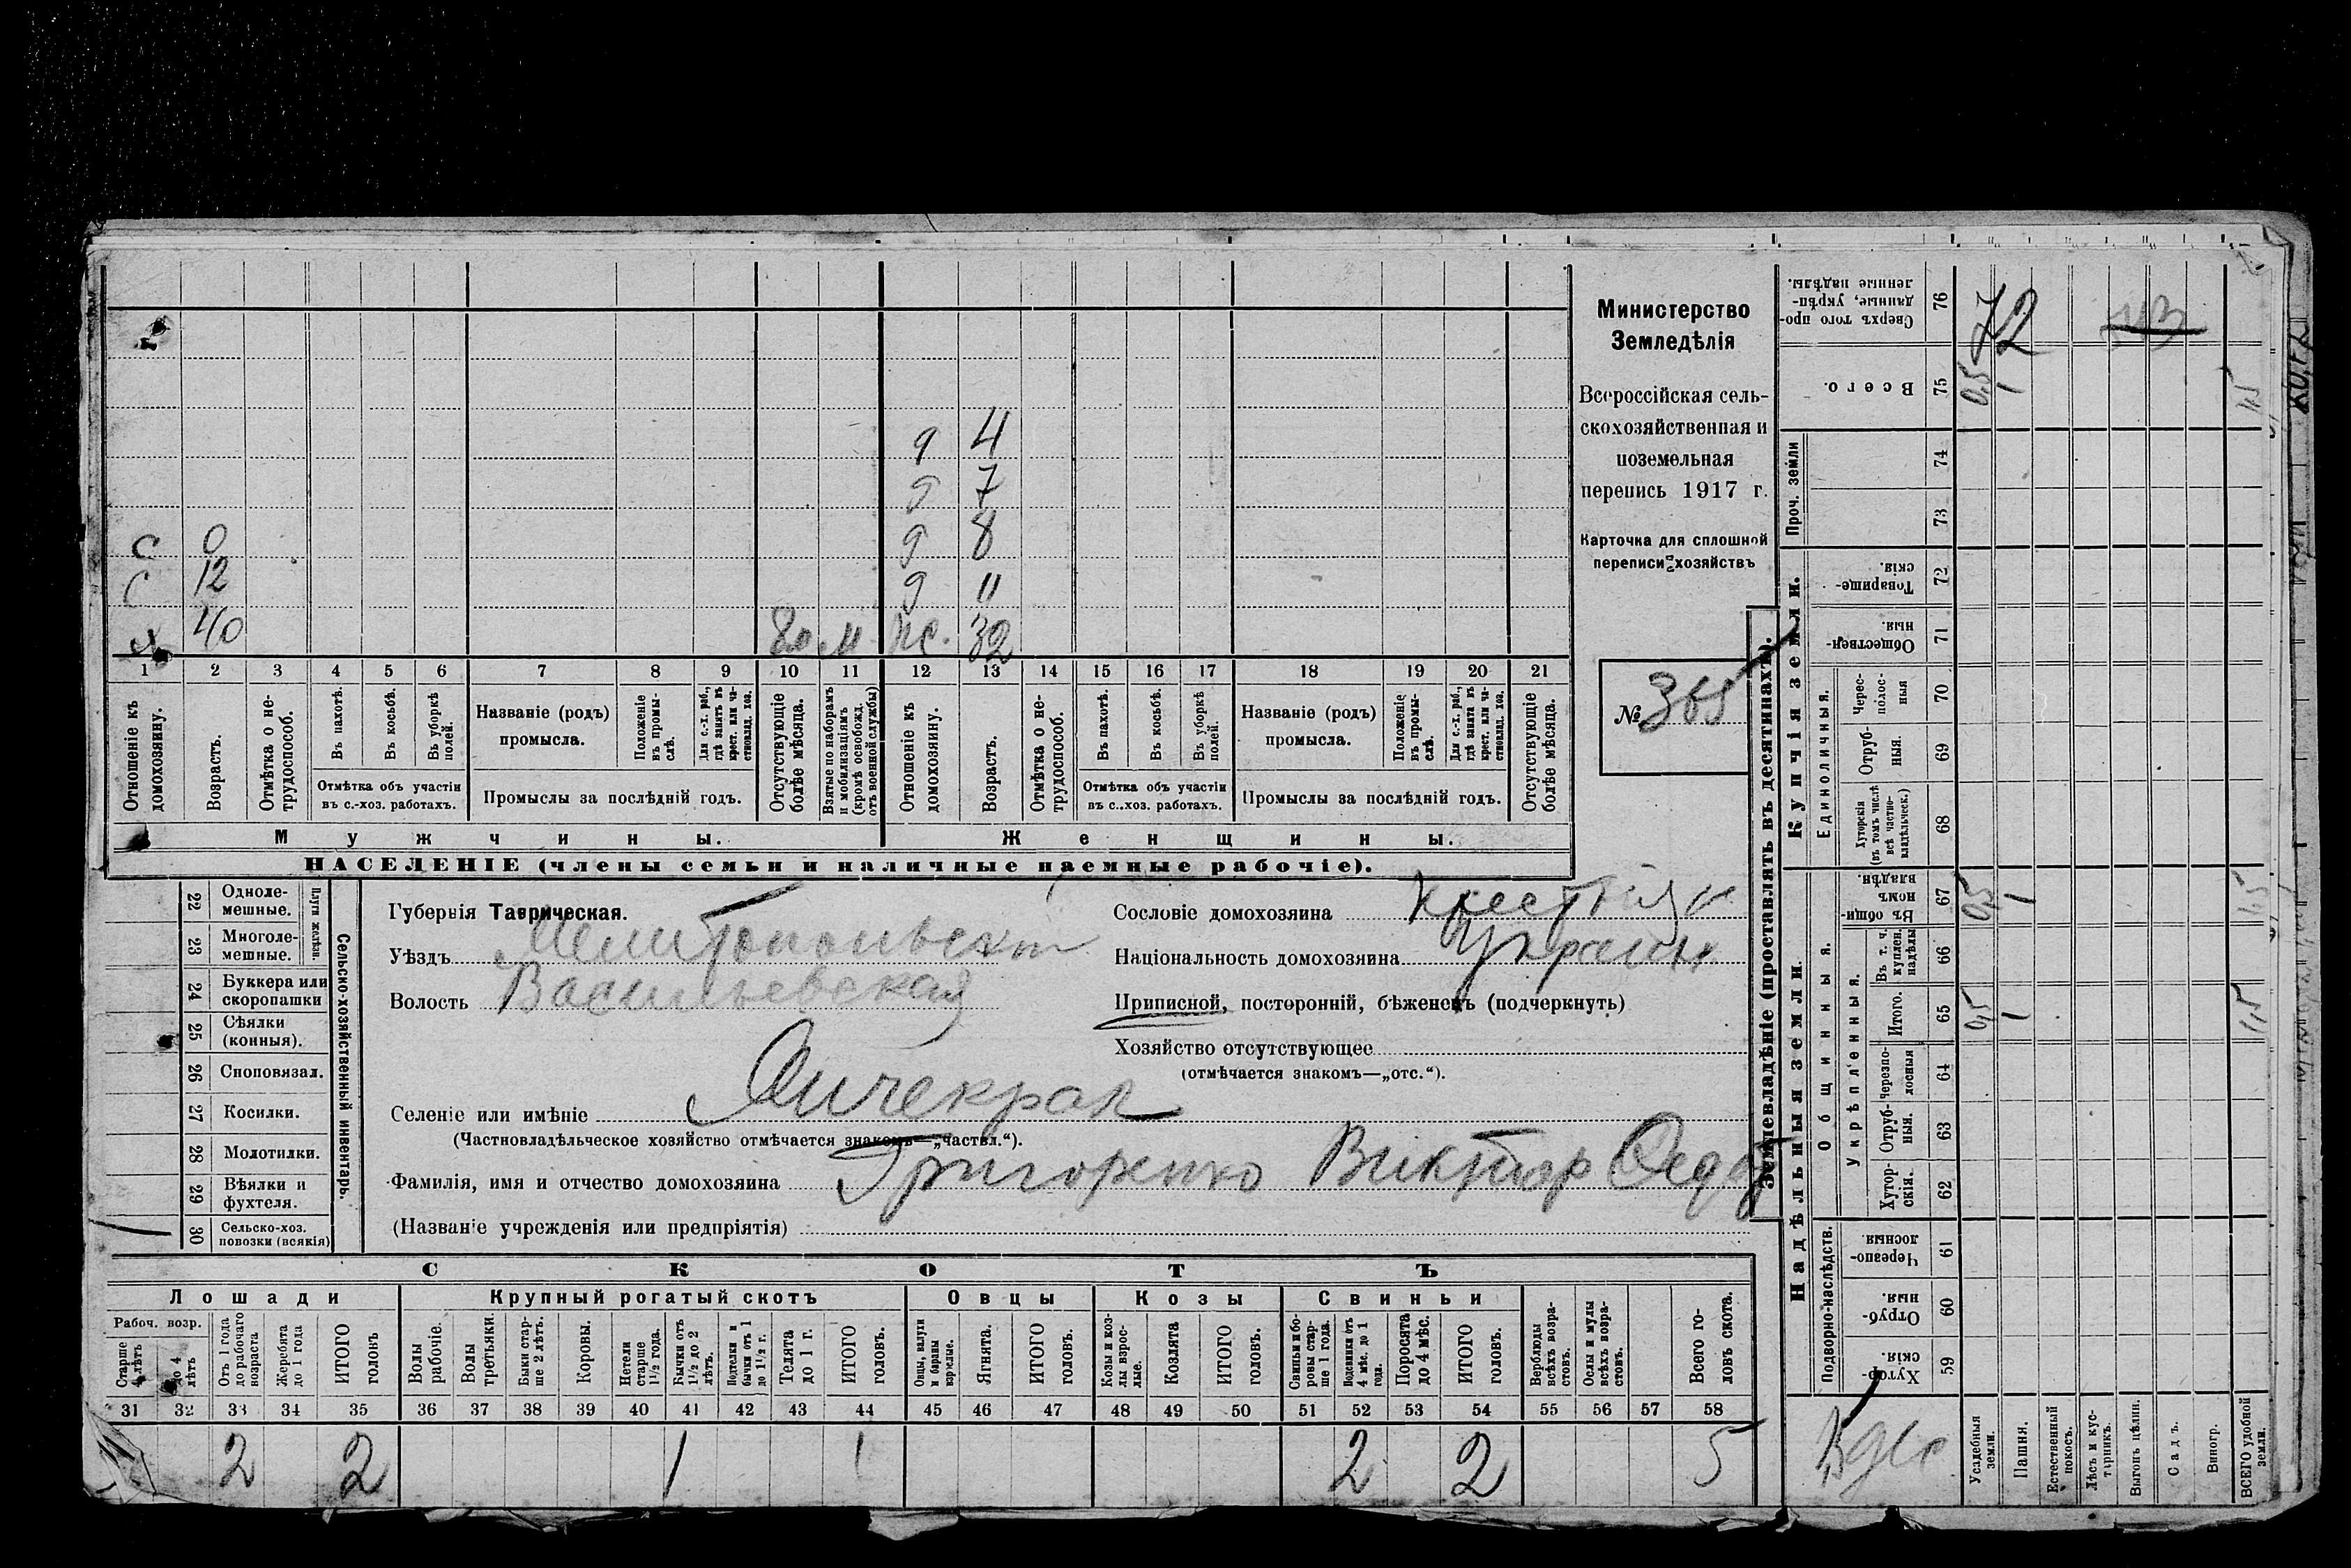 Министерство
Земледѣлія
Всероссійская сель-
скохозяйственная и
поземельная
перепись 1917 г.
Карточка для сплошной
переписи хозяйствъ
№ 365
д 4
д 7
с 0 д 8
с 12 д 11
х 40 ж. 32
1 2 3 4 5 6 7 8 9 10 11 12 13 14 15 16 17 18 19 20 21
Отношеніе къ домохозяину.
Возрастъ.
Отмѣтка о не-трудоспособ.
Въ пахотѣ.
Въ косьбѣ.
Въ уборкѣ полей.
Отмѣтка объ участіи
въ с.-хоз. работахъ.
Названіе (родъ)
промысла.
Положеніе въ промы-слѣ.
Для с.-х. раб., гдѣ занятъ въ крест. или ча-стновлад. хоз.
Промыслы за послѣдній годъ.
Отсутствующіе болѣе мѣсяца.
Взятые по наборамъ и мобилизаціямъ (кромѣ освобожд. отъ военной службы)
Отношеніе къ домохозяину.
Возрастъ.
Отмѣтка о не-трудоспособ.
Въ пахотѣ.
Въ косьбѣ.
Въ уборкѣ полей.
Отмѣтка объ участіи
въ с.-хоз. работахъ.
Названіе (родъ)
промысла.
Положеніе въ промы-слѣ.
Для с.-х. раб., гдѣ занята въ крест. или ча-стновлад. хоз.
Промыслы за послѣдній годъ.
Отсутствующіе болѣе мѣсяца.
Мужчины. Женщины.
НАСЕЛЕНІЕ (члены семьи и наличные наемные рабочіе).
22 Одноле-мешные.
23 Многоле-мешные.
Плуги желѣзн.
24 Буккера или скоропашки
25 Сѣялки (конныя).
26 Сноповязал.
27 Косилки.
28 Молотилки.
29 Вѣялки и фухтеля.
30 Сельско-хоз. повозки (всякія)
Сельско-хозяйственный инвентарь.
Губернія Таврическая.
Уѣздъ Мелитопольск
Волость Васильевская
Селеніе или имѣніе Янчекрак
(Частновладѣльческое хозяйство отмѣчается знакомъ—„частвл.“).
Фамилія, имя и отчество домохозяина Григоренко Виктор Фед
(Названіе учрежденія или предпріятія)
Сословіе домохозяина крестьян
Національность домохозяина украин
Приписной, посторонній, бѣженецъ (подчеркнуть)
Хозяйство отсутствующее
(отмѣчается знакомъ—„отс.“).
СКОТЪ
Лошади Крупный рогатый скотъ Овцы Козы Свиньи
Рабоч. возр.
Старше 4 лѣтъ
до 4 лѣтъ
Отъ 1 года до рабочаго возраста
Жеребята до 1 года
ИТОГО головъ
Волы рабочіе.
Волы третьяки.
Быки стар-ше 2 лѣтъ.
Коровы.
Нетели старше 1½ года.
Бычки отъ 1½ до 2 лѣтъ.
Подтелки и бычки отъ 1 до 1½ г.
Телята до 1 г.
ИТОГО головъ.
Овцы, валухи и бараны взрослые.
Ягнята.
ИТОГО головъ.
Козы и коз-лы взрос-лые.
Козлята
ИТОГО головъ.
Свиньи и бо-ровы стар-ше 1 года.
Подсвинки отъ 4 мѣс. до 1 года.
Поросята до 4 мѣс.
ИТОГО головъ.
Верблюды всѣхъ возра-стовъ.
Ослы и мулы всѣхъ возра-стовъ.
Всего го-ловъ скота.
31 32 33 34 35 36 37 38 39 40 41 42 43 44 45 46 47 48 49 50 51 52 53 54 55 56 57 58
2 2 1 1 2 2 5
Землевладѣніе (проставлять въ десятинахъ).
Надѣльныя земли.
Купчія земли.
Проч. земли
Подворно-наслѣдств.
Общинныя.
Укрѣпленныя.
Единоличныя.
76 Сверхъ того про-данные, укрѣп-ленные надѣлы.
75 Всего. 0,5 1 1,5
74
73
72 Товарище-скія.
71 Обществен-ныя.
70 Черес-полос-ныя
69 Отруб-ныя.
68 Хуторскія (въ томъ числѣ всѣ частно-владѣльческ.)
67 Въ общин-номъ владѣн. 0,5 1 1,5
66 Въ т. ч. куплен. надѣлы
65 Итого. 0,5 1 1,5
64 Черезпо-лосныя
63 Отруб-ныя.
62 Хутор-скія.
61 Черезпо-лосныя.
60 Отруб-ныя.
59 Хутор-скія.
72
Усадебныя земли.
Пашня.
Естественный покосъ.
Лѣсъ и кус-тарникъ.
Выгонъ цѣлин.
Садъ.
Виногр.
ВСЕГО удобной земли.